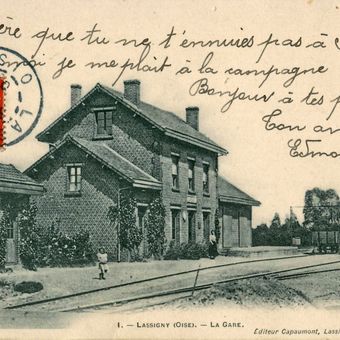 ère que tu ne t'ennuies pas à
moi je me plaît à la campagne
Bonjour à tes
Ton am
Edmo
LA
1. — LASSIGNY (OISE). — LA GARE.
Éditeur Capaumont, Lassi